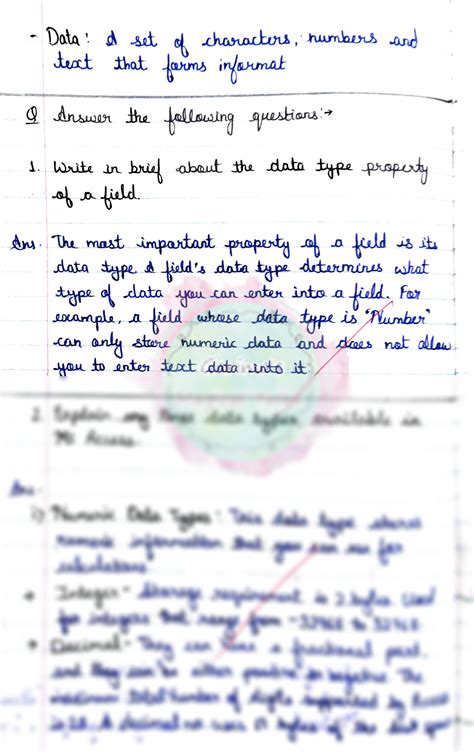 - Data: A set of characters, numbers and
text that forms informat
Q Answer the following questions:→
1. Write in brief about the data type property
of a field.
Ans. The most important property of a field is its
data type A field's data type determines what
type of data you can enter into a field. For
example, a field whose data type is "Number"
can only store numeric data and does not allow
you to enter text data into it.
2. Explain any three data types available in
MS Access.
Ans.
i) Numeric Data Types: This data type stores
numeric information that you can use for
calculations
Integer - Storage requirement is 2 bytes. Used
for integers that range from -32768 to 32768
Decimal - They can have a fractional part
and they can be either positive or negative. The